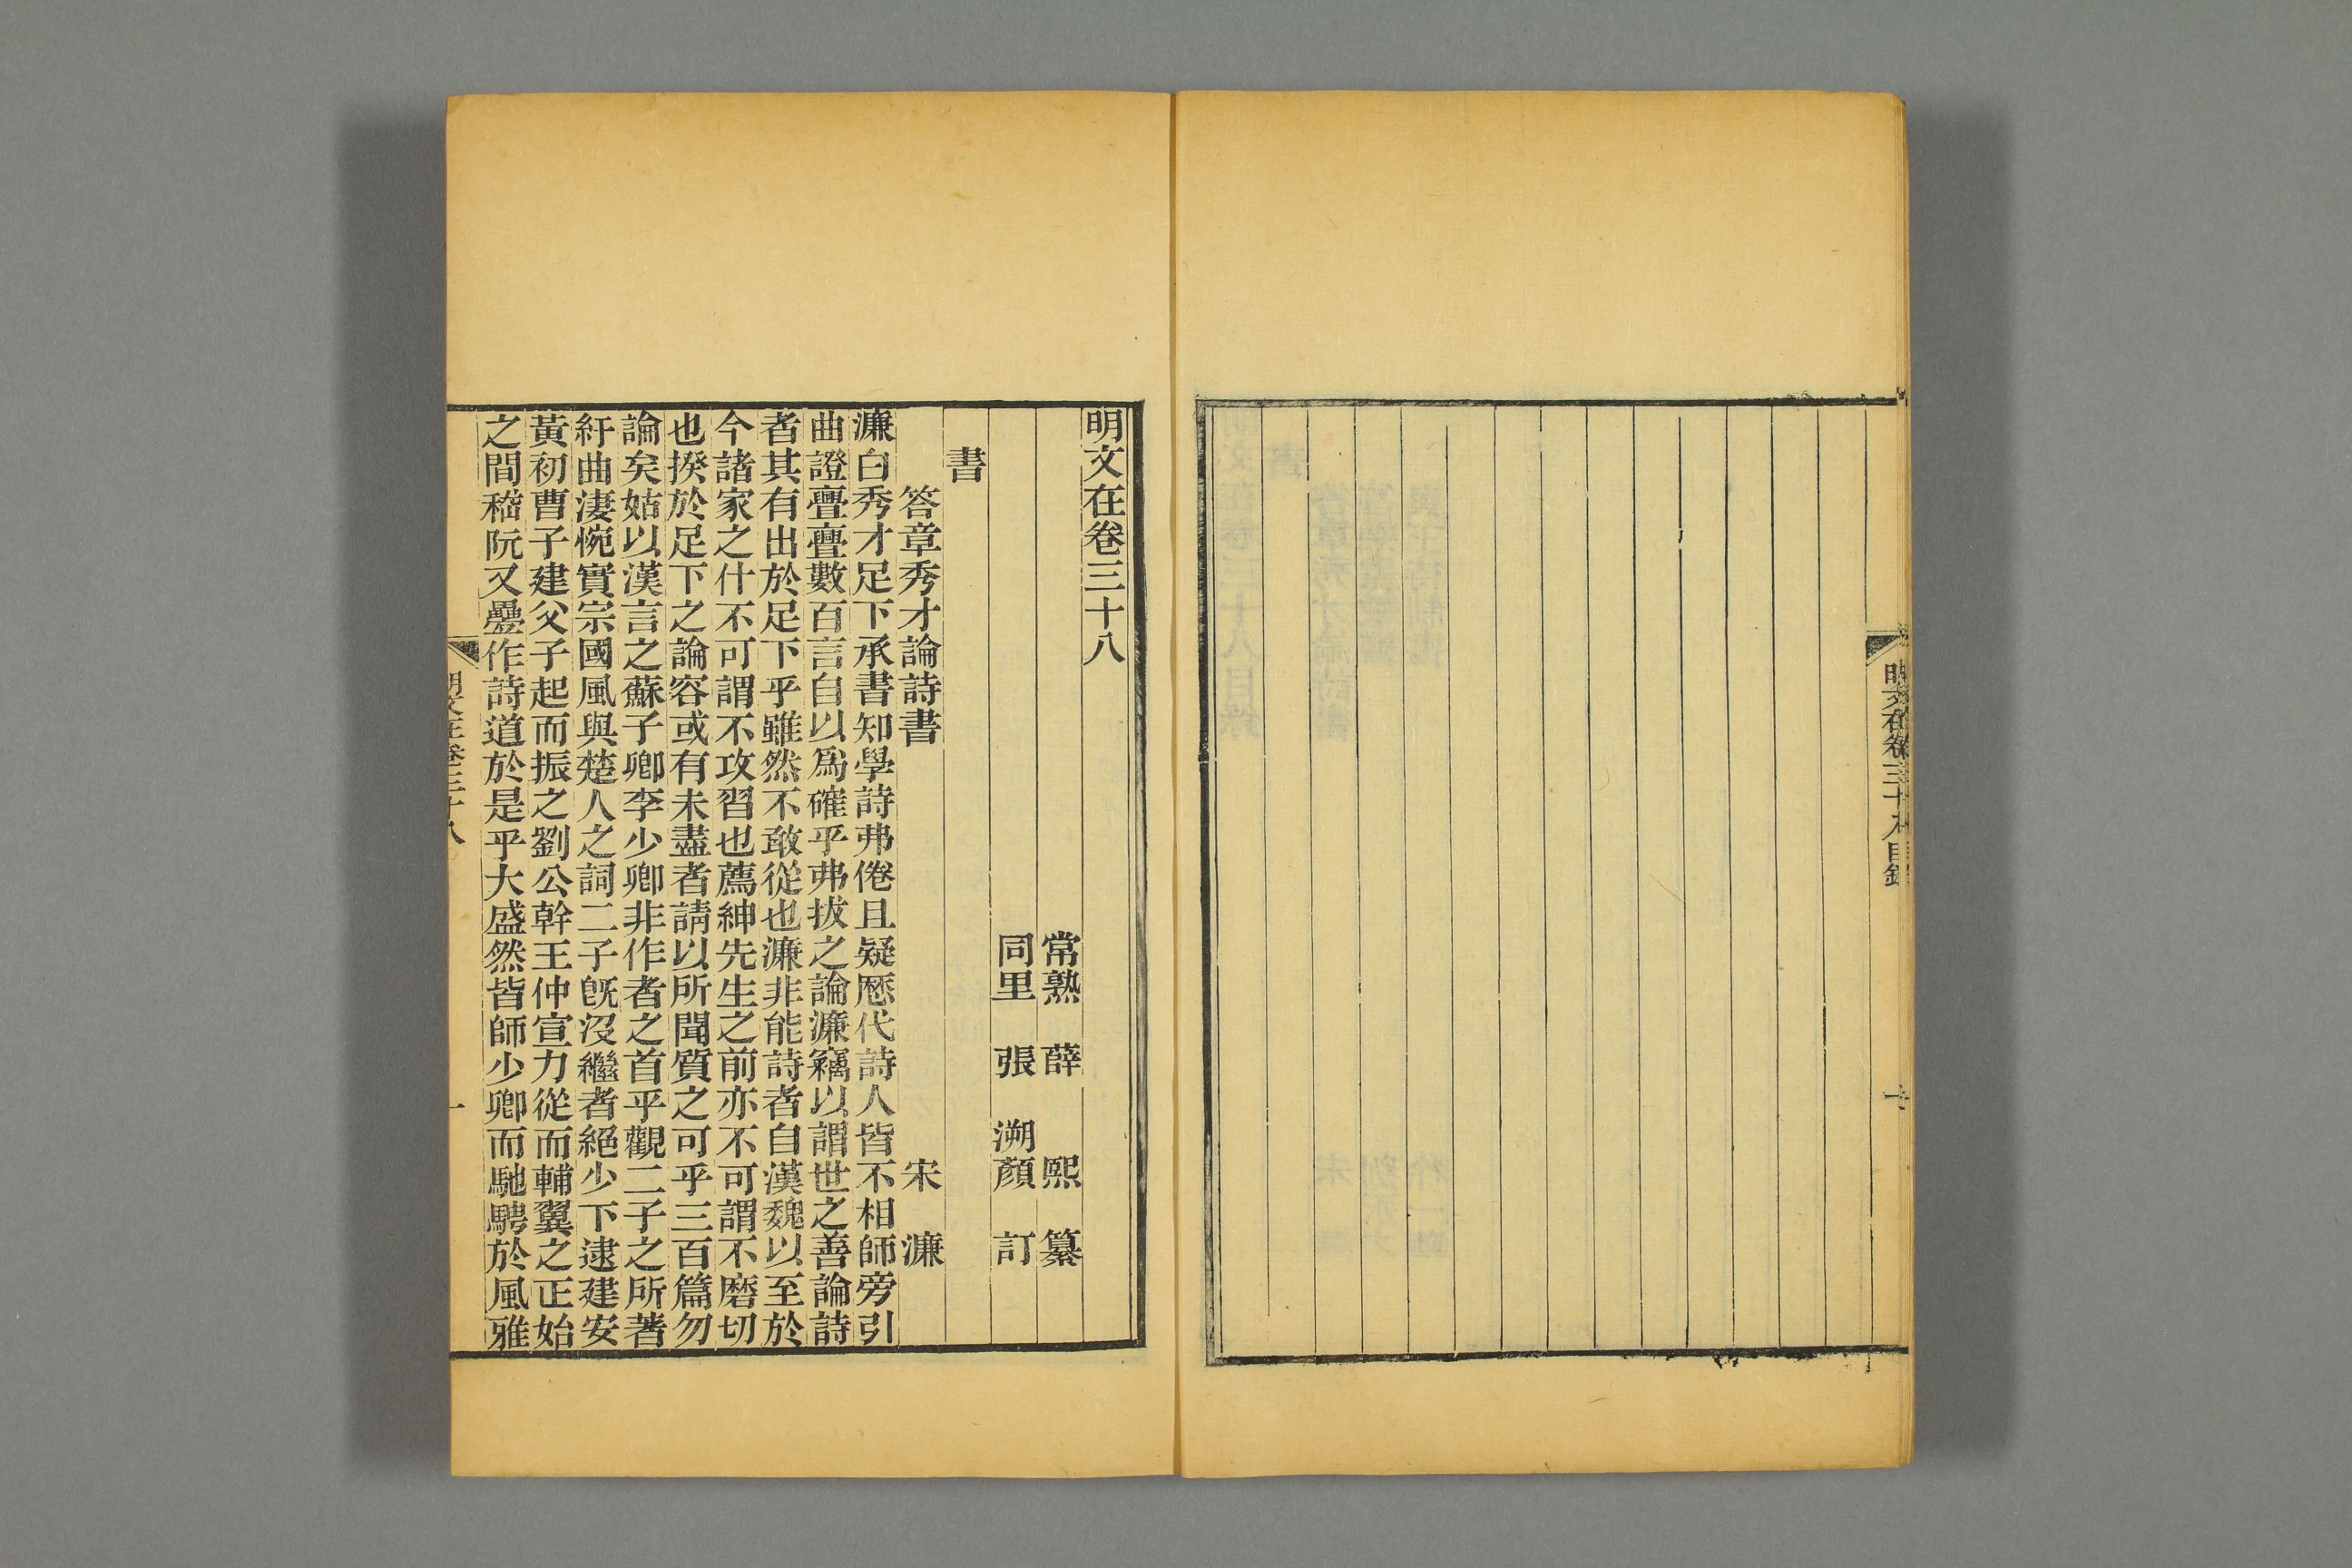 明文在卷三十八目錄
明文在卷三十八
常熟 薛 熙 纂
同里 張 溯顏 訂
書
答章秀才論詩書 宋 濂
濂白秀才足下承書知學詩弗倦且疑歷代詩人皆不相師旁引
曲證亹亹數百言自以爲確乎弗拔之論濂竊以謂世之善論詩
者其有出於足下乎雖然不敢從也濂非能詩者自漢魏以至於
今諸家之什不可謂不攻習也薦紳先生之前亦不可謂不磨切
也揆於足下之論容或有未盡者請以所聞質之可乎三百篇勿
論矣姑以漢言之蘇子卿李少卿非作者之首乎觀二子之所著
紆曲淒惋實宗國風與楚人之詞二子旣沒繼者絕少下逮建安
黃初曹子建父子起而振之劉公幹王仲宣力從而輔翼之正始
之間嵇阮又疊作詩道於是乎大盛然皆師少卿而馳騁於風雅
明文在卷三十八
一